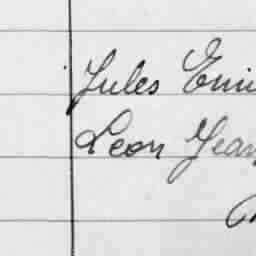 Jules Emi
Leon Jean